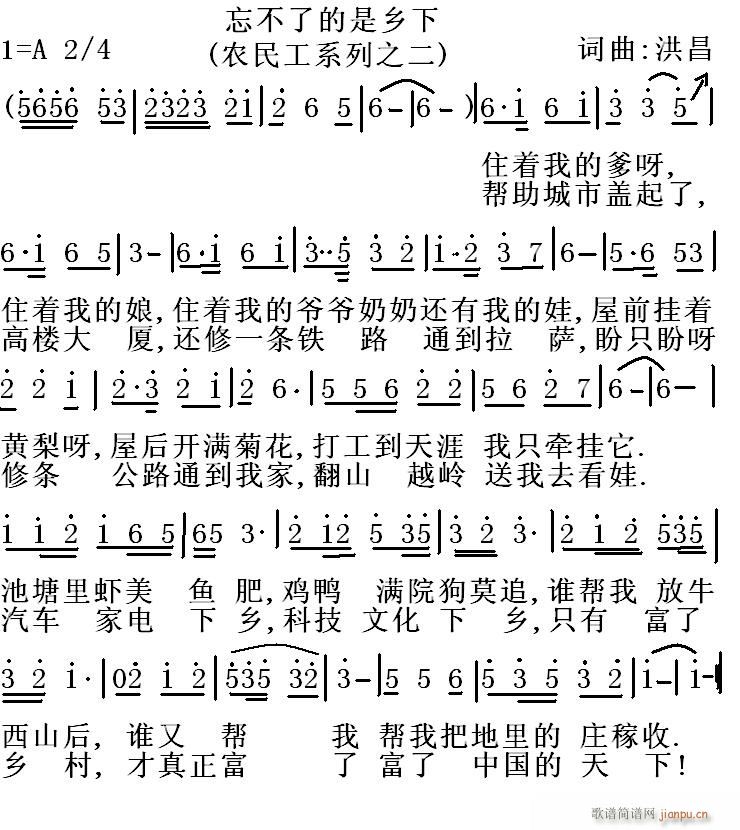 忘不了的是乡下
1=A 2/4 (农民工系列之二) 词曲:洪昌
(5656 53|2323 2i|2 6 5|6-|6-)|6·i 6 i|3 3 5|
住着我的爹呀,
帮助城市盖起了,
6·i 6 5|3-|6·i 6 i|3··5 3 2|i·2 3 7|6-|5·6 53|
住着我的娘,住着我的爷爷奶奶还有我的娃,屋前挂着
高楼大 厦,还修一条铁 路 通到拉 萨,盼只盼呀
2 2 i|2·3 2 i|2 6·|5 5 6 2 2|5 6 2 7|6-|6-|
黄梨呀,屋后开满菊花,打工到天涯 我只牵挂它.
修条 公路通到我家,翻山 越岭 送我去看娃.
i i 2 i 6 5|65 3·|2 i2 5 35|3 2 3·|2 i 2 535|
池塘里虾美 鱼 肥,鸡鸭 满院狗莫追,谁帮我 放牛
汽车 家电 下 乡,科技 文化 下 乡,只有 富了
3 2 i·|02 i 2|535 32|3-|5 5 6|5 3 5 2 2|i-|i-|
西山后, 谁又 帮 我 帮我把地里的 庄稼收.
乡 村, 才真正富 了 富了 中国的 天 下!
歌谱简谱网 jianpu.cn